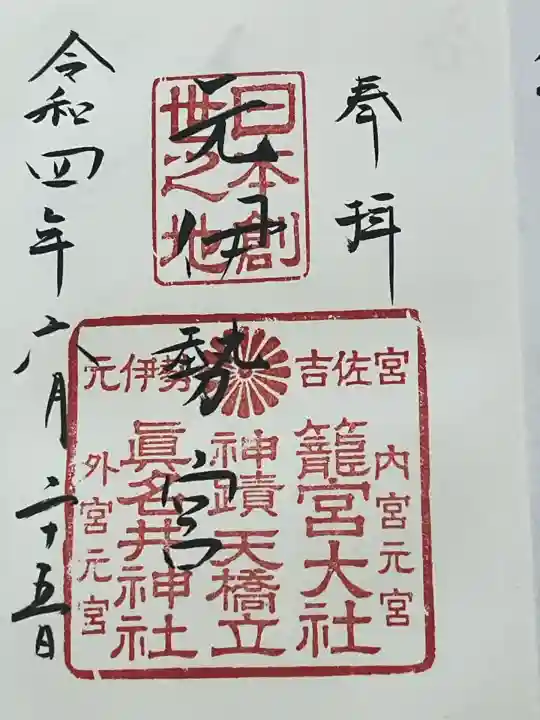 奉拝
日本創
世之地
元伊勢宮
吉佐宮
元伊勢
内宮元宮
籠宮大社
神蹟天橋立
眞名井神社
外宮元宮
令和四年六月二十五日